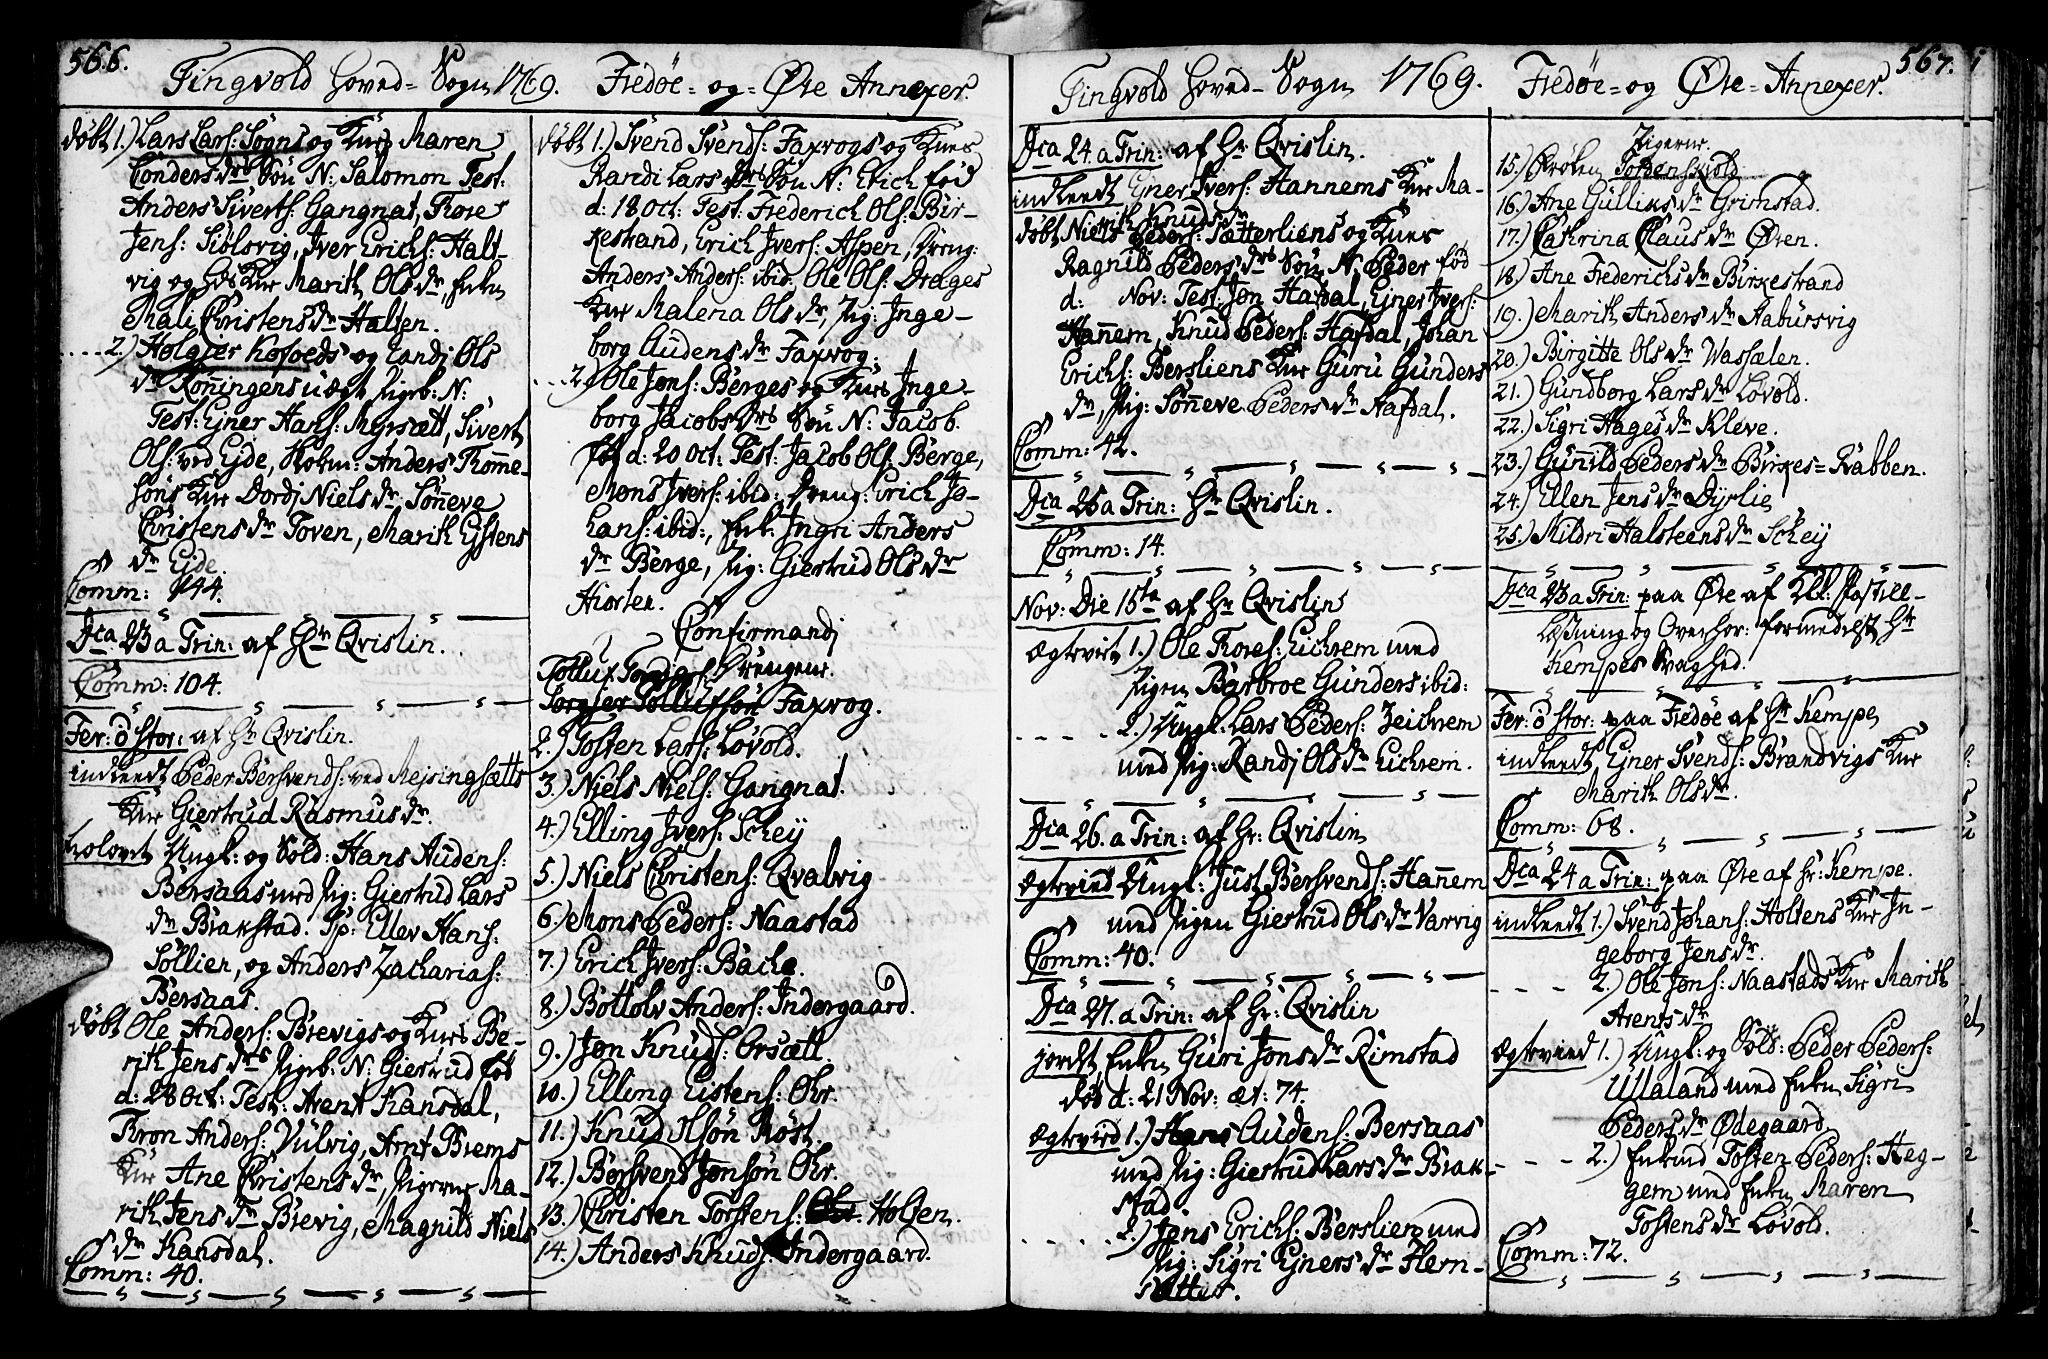 566.
Tingvold Hoved- Sogn 1769. Fredøe- og- Øre Annexer.
døbt 1.) Lars Lars: Sogns og Kurs Maren
Conders drs Søn N: Salomon Test:
Anders Siverts: Gangnat, Tore
Jens: Siölsvig, Iver Erichs: Halt-
vig og Kur Marith Ols dr, Enken
Mali Christens dr Halten.
2.) Holgier Kofoeds og Randj Ols
dr Ronningens uægt Pigeb: N:
Test: Ejner Hans: Mejsætt, Sivert
Ols: ved Eide, Anders Romme-
söns Kur Dordj Niels dr Sönneve
Christens dr Toven, Marith Estens
dr Eide.
Comm: 144.
Dca 23 a Trin: af Hr Qvislin.
Comm: 104.
Fer: 6 stor: af Hr Qvislin.
indleedt Peder Børsvends: ved Mejsingsætts
Kur Giertrud Rasmus dr.
trolovet Ungk: og Sold: Hans Audens:
Bersaas med Pig: Giertrud Lars
dr Brakstad. Sp: Ellev Hans:
Sollien, og Anders Zacharias:
Bersaas.
døbt Ole Anders: Brevigs og Kurs Be-
rith Jens drs Pigeb: N: Giertrud fød
d: 28 Oct: Test: Arent Kansdal,
Tron Anders: Vulvig, Arnt Brems
Kur Ane Christens dr, Pigerne Ma-
rith Jens dr Brevig, Magnild Niels
dr Kansdal.
Comm: 40.
døbt 1.) Svend Svends: Faxvogs og Kurs
Randi Lars drs Søn N: Erich fød
d: 18 Oct: Test: Frederich Ols: Bir-
kestrand, Erich Ivers: Aspen, Dreng:
Anders Anders: ibid: Ole Ols: Drages
Kur Malena Ols dr, Pig: Inge-
borg Audens dr Faxvog.
2.) Ole Jons: Berges og Kurs Inge-
borg Jacobs drs Søn N: Jacob.
fød d: 20 Oct: Test: Jacob Ols: Berge,
Mons Ivers: ibid: Dreng: Erich Jo-
hans: ibid:, Enk: Ingri Anders
dr Berge, Pig: Giertrud Ols dr
Hiorten.
Confirmandj
Drengene.
Torgier Tollufsön Faxvog.
2.) Tosten Lars: Lovold.
3.) Niels Niels: Gangnat.
4.) Elling Ivers: Schey
5.) Niels Christens: Qvalvig
6.) Mons Peders: Naastad
7.) Erich Ivers: Bache.
8.) Bottolv Anders: Indergaard.
9.) Jon Knuds: Orsætt.
10.) Elling Eistens: Ohr.
11.) Knud Ilsön Röst.
12.) Börsvend Jonsön Ohr.
13.) Christen Torstens: Holten.
14.) Anders Knuds: Indergaard.
567.
Tingvold Hoved- Sogn 1769. Fredøe- og Øre- Annexer.
Dca 24. a Trin: af Hr Qvislin.
indleedt Ejner Ivers: Hannems Kur Ma-
rith Knuds dr
døbt Niels Peders: Sætterliens og Kurs
Ragnild Peders drs Søn N: Peder fød
d: Nov: Test: Jon Hafdal, Ejner Ivers:
Hannem, Knud Peders: Hafdal, Johan
Erichs: Bersliens Kur Guru Gunders
dr, Pig: Sönneve Peders dr Hafdal.
Comm: 42.
Dca 25 a Trin: Hr Qvislin.
Comm: 14.
Nov: Die 15ta af Hr Qvislin
Ægtevict 1.) Ole Tores: Eichrem med
Pigen Barbroe Gunders ibid:
2.) Ungk: Lars Peders: Zeichrem
med Pig: Randj Ols dr Eichrem.
Dca 26. a Trin: af Hr: Qvislin
Ægtevied Ungk: Just Børsvends: Hannem
med Pigen Giertrud Ols dr Varvig
Comm: 40.
Dca 27. a Trin: af Hr: Qvislin
jordet Enken Guri Jons dr Rimstad
død d: 21 Nov: æt: 74.
Ægtevied 1.) Hans Audens: Bersaas
med Pig: Giertrud Lars dr Brak-
stad.
2.) Jens Erichs: Berslien med
Pig: Sigri Ejners dr Hem-
sætter.
Pigerne.
15.) Frøken Tordenskiold
16.) Ane Gulliks dr Grimstad.
17.) Cathrina Claus dr Øren.
18.) Ane Frederichs dr Birkestrand
19.) Marith Anders dr Aabursvig
20.) Birgitte Ols dr Wassælen.
21.) Gundborg Lars dr Lovold.
22.) Sigri Hages dr Kleve.
23.) Gunild Peders dr Birkes-Rabben.
24.) Ellen Jens dr Dyrlie
25.) Mildri Halsteens dr Schey
Dca 23 a Trin: paa Øre af Kl: Postill-
Læsning og Overhør: formedelst Hr
Kempes Svaghed.
Fer: 6 stor: paa Fredøe af Hr Kempe
indleedt Ejner Svends: Brandvigs Kur
Marith Ols dr.
Comm: 68.
Dca 24 a Trin: paa Øre af Hr: Kempe.
indleedt 1.) Svend Johans: Holtens Kur In-
geborg Jens dr.
2.) Ole Jons: Naastads Kur Marith
Arents dr
Ægtevied 1.) Ungk: og Sold: Peder Peders:
Ullaland med Enken Sigri
Peders dr Ødegaard.
2.) Enkemd Tosten Peders: Heg-
gem med Enken Maren
Tostens dr Lovold.
Comm: 72.